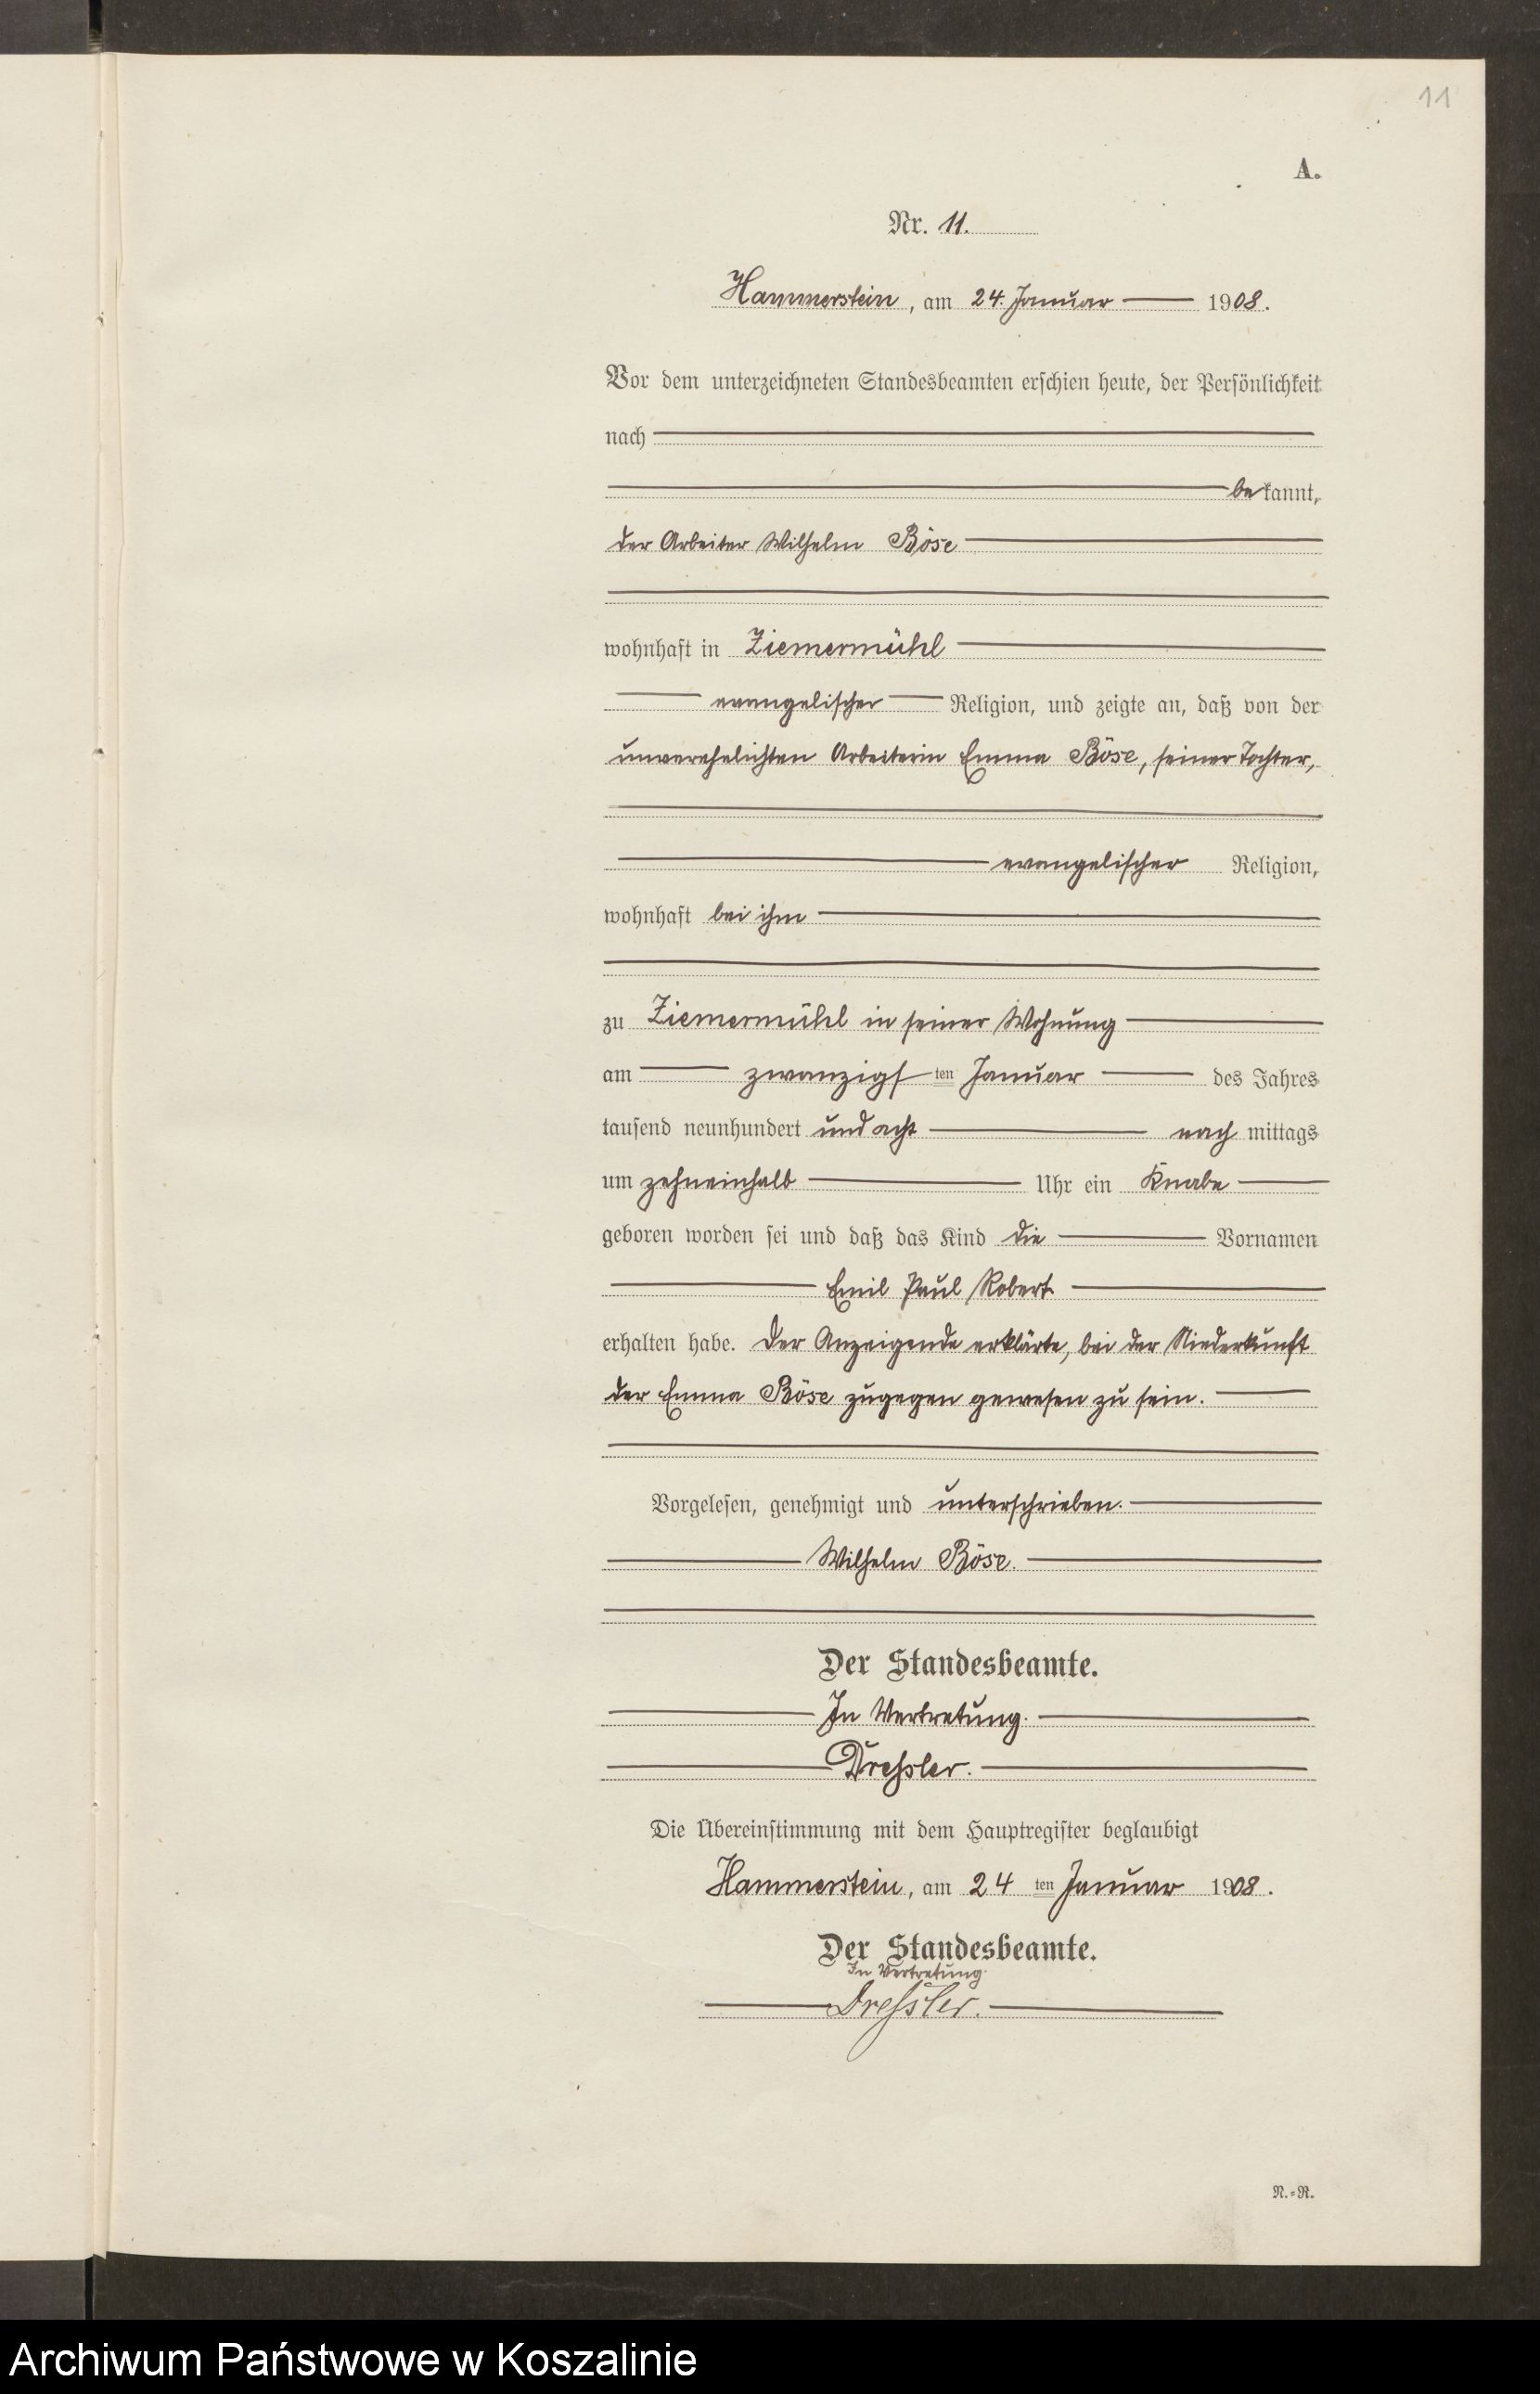 11
A.
Nr. 11.
Hammerstein, am 24. Januar 1908.
Vor dem unterzeichneten Standesbeamten erschien heute, der Persönlichkeit
nach
bekannt,
der Arbeiter Wilhelm Böse
wohnhaft in Ziemermühl
evangelischer Religion, und zeigte an, daß von der
unverehelichten Arbeiterin Emma Böse, seiner Tochter,
evangelischer Religion,
wohnhaft bei ihm
zu Ziemermühl in seiner Wohnung
am zwanzigsten Januar des Jahres
tausend neunhundert und acht nach mittags
um zehneinhalb Uhr ein Knabe
geboren worden sei und daß das Kind die Vornamen
Emil Paul Robert
erhalten habe. Der Anzeigende erklärte, bei der Niederkunft
der Emma Böse zugegen gewesen zu sein.
Vorgelesen, genehmigt und unterschrieben.
Wilhelm Böse.
Der Standesbeamte.
In Vertretung.
Dressler.
Die Übereinstimmung mit dem Hauptregister beglaubigt
Hammerstein, am 24ten Januar 1908.
Der Standesbeamte.
In Vertretung.
Dressler.
N.=R.
Archiwum Państwowe w Koszalinie